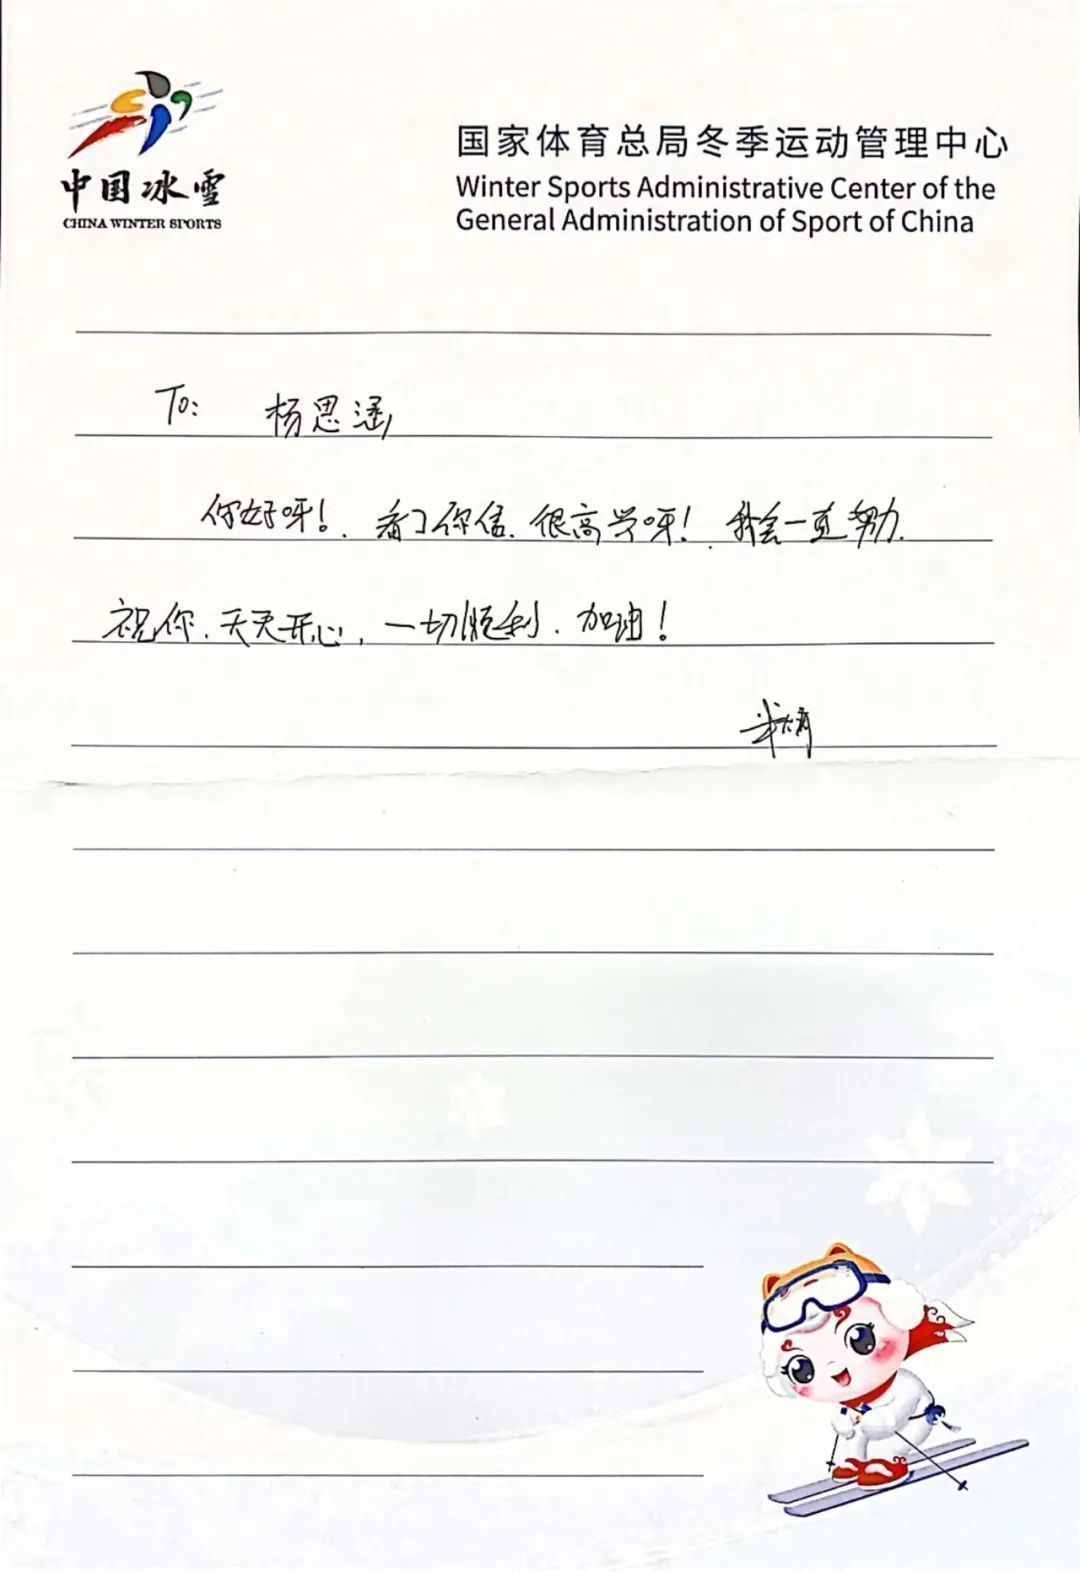 中国冰雪
CHINA WINTER SPORTS
国家体育总局冬季运动管理中心
Winter Sports Administrative Center of the
General Administration of Sport of China
To: 杨思涵
你好呀！.看了你信.很高兴呀！.我会一直努力.
祝你.天天开心,一切顺利.加油！